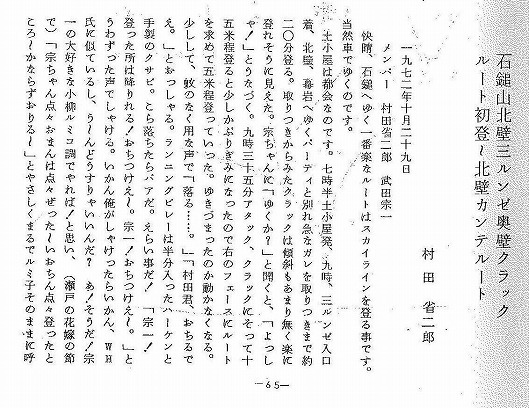 石鎚山北壁三ルンゼ奥壁クラック
ルート初登～北壁カンテルート
村田 省二郎
一九七二年十月二十九日
メンバー 村田省二郎 武田宗一
快晴、石鎚へゆく一番楽なルートはスカイラインを登る事です。
当然車でゆくのです。
土小屋は都会なのです。七時半土小屋発、九時、三ルンゼ入口
着、北壁、幕岩へゆくパーティと別れ急なガレを取りつきまで約
二〇分登る。取りつきからみたクラックは傾斜もあまり無く楽に
登れそうに見えた。宗ちゃんに「ゆくか？」と聞くと、「よっし
ゃ！」とうなづく。九時三十五分アタック、クラックにそって十
五米程登ると少しかぶりぎみになったので右のフェースにルート
を求めて五米程登っていった。ゆきづまったのか動かなくなる。
少しして、蚊のなく様な声で「落る……。」「村田君、おちるで
え。」とおっしゃる。ランニングビレーは半分入ったハーケンと
手製のクサビ。こら落ちたらパアだ。えらい事だ！「宗一！
登った所は降りれる！おちつけえ～。宗一！おちつけえ～。」と
うわずった声でしゃける。いかん俺がしゃけったらいかん、WH
氏に似ているし、う～んどうすりゃいいんだ？ あ！そうだ！宗
一の大好きな小柳ルミコ調でやれば！と思い、（瀬戸の花嫁の節
で）「宗ちゃん点々おまんは点々ぜった～いおちん点々登ったと
ころ～かならずおりる～」とやさしくまるでルミ子そのままに呼
—65—